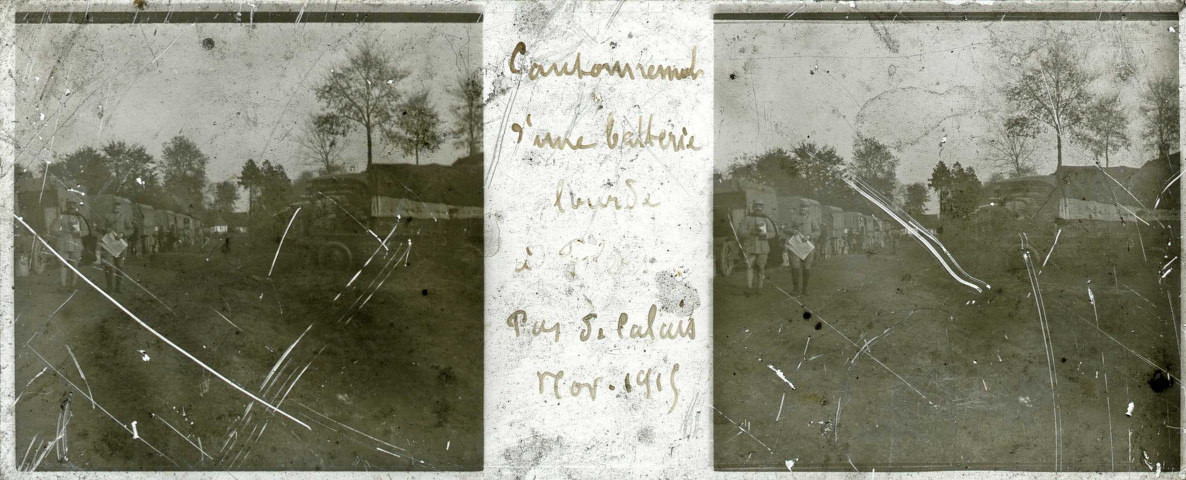 Cantonnement
d'une batterie
lourde
à
Pas de Calais
Nov. 1915